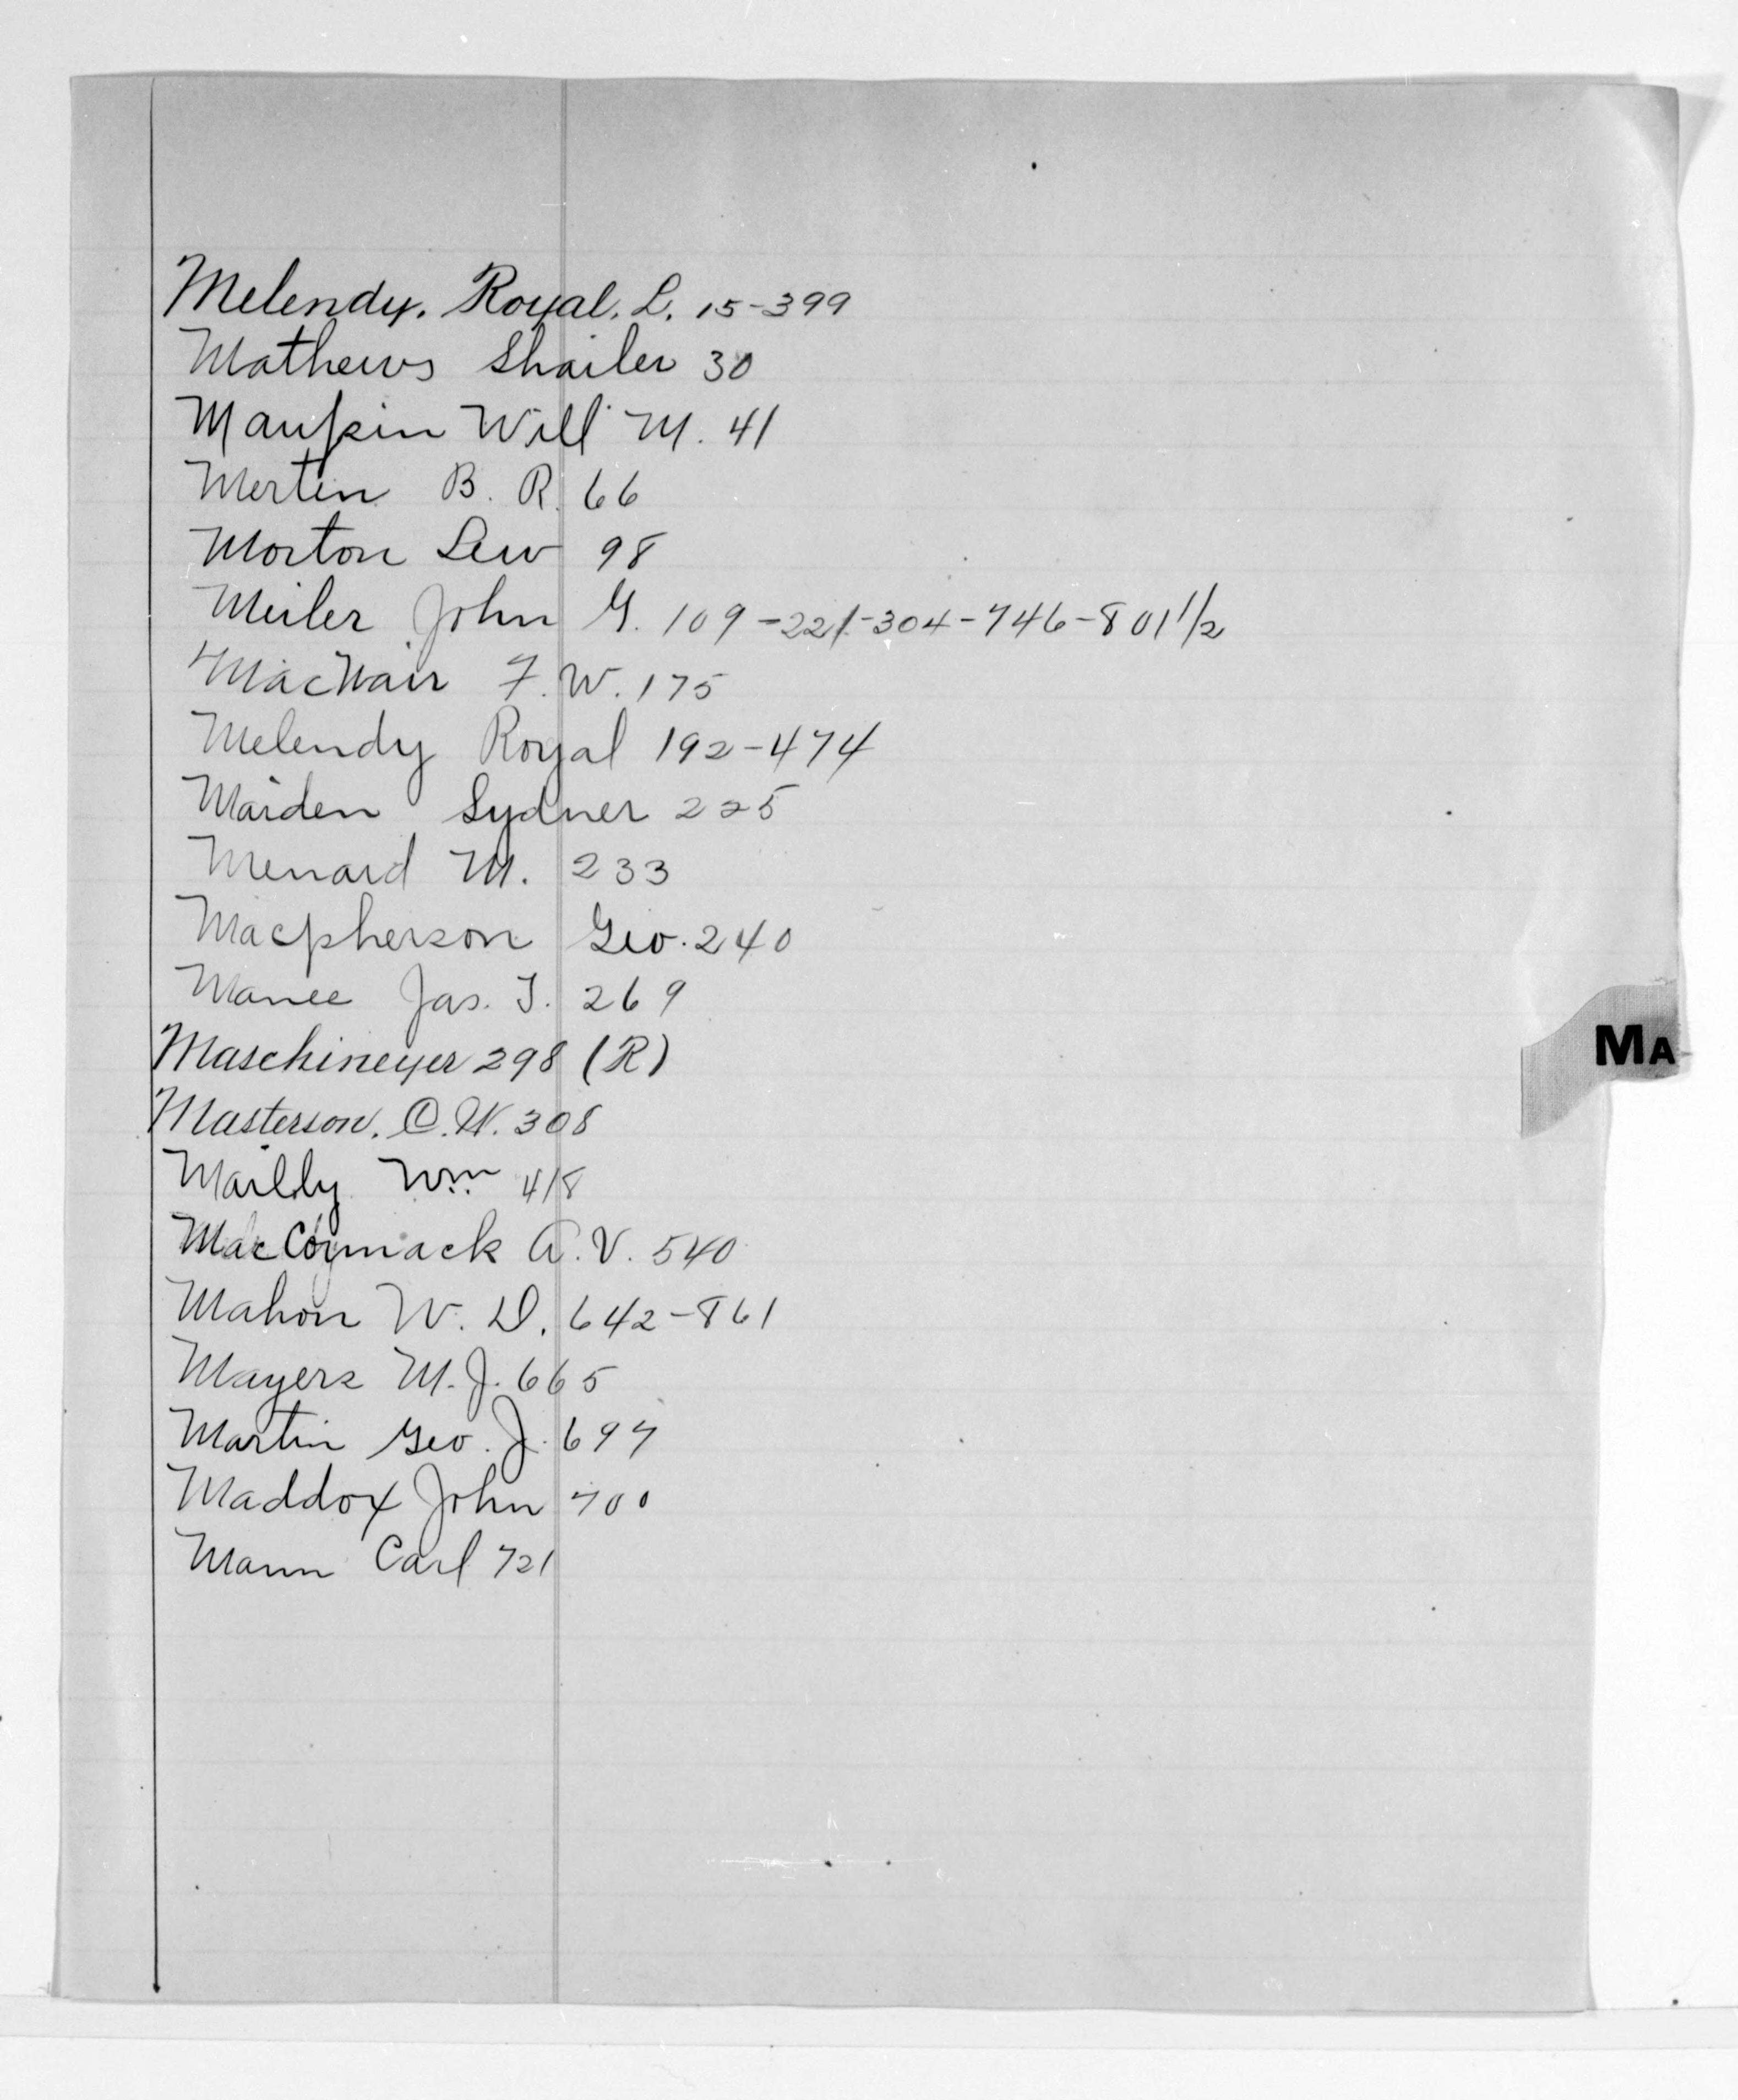 Melendy. Royal. L. 15-399
Mathews Shailer 30
Maupin Will M. 41
Merten B. R. 66
Morton Lew 98
Meiler John G. 109-221-304-746-801 1/2
MacNair F. W. 175
Melendy Royal 192-474
Maiden Sydner 225
Menard M. 233
Macpherson Geo. 240
Manee Jas. T. 269
Maschineyer 298 (R)
Masterson. C. W. 308
Mailly Wm 418
MacCormack A. V. 540
Mahon W. D. 642-861
Mayers M. J. 665
Martin Geo. J. 697
Maddox John 700
Mann Carl 721
MA